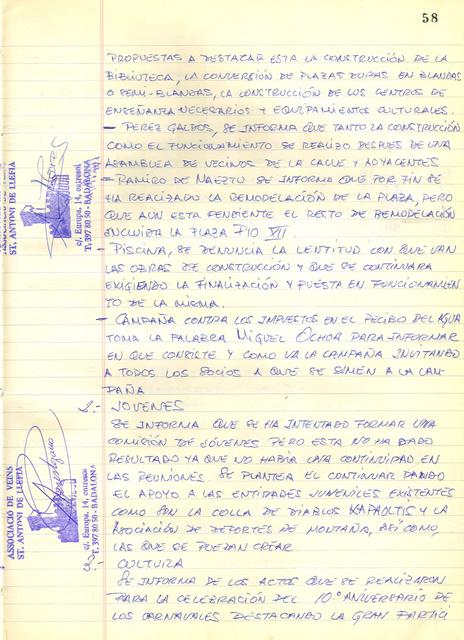 58
PROPUESTAS A DESTACAR ESTA LA CONSTRUCCIÓN DE LA
BIBLIOTECA, LA CONVERSIÓN DE PLAZAS DURAS EN BLANDAS
O SEMI-BLANDAS, LA CONSTRUCCIÓN DE LOS CENTROS DE
ENSEÑANZA NECESARIOS Y EQUIPAMIENTOS CULTURALES.
- PEREZ GALDOS, SE INFORMA QUE TANTO LA CONSTRUCCIÓN
COMO EL FUNCIONAMIENTO SE REALIZO DESPUES DE UNA
ASAMBLEA DE VECINOS DE LA CALLE Y ADYACENTES
- RAMIRO DE MAEZTU SE INFORMA QUE POR FIN SE
HA REALIZADO LA REMODELACIÓN DE LA PLAZA, PERO
QUE AUN ESTA PENDIENTE EL RESTO DE REMODELACIÓN
INCLUIDA LA PLAZA PIO XII
- PISCINA, SE DENUNCIA LA LENTITUD CON QUE VAN
LAS OBRAS DE CONSTRUCCIÓN Y QUE SE CONTINUARA
EXIGIENDO LA FINALIZACIÓN Y PUESTA EN FUNCIONAMIEN
TO DE LA MISMA.
- CAMPAÑA CONTRA LOS IMPUESTOS EN EL RECIBO DEL AGUA
TOMA LA PALABRA MIGUEL OCHOA PARA INFORMAR
EN QUE CONSISTE Y COMO VA LA CAMPAÑA INVITANDO
A TODOS LOS SOCIOS A QUE SE SUMEN A LA CAM-
PAÑA
2.- JOVENES
SE INFORMA QUE SE HA INTENTADO FORMAR UNA
COMISIÓN DE JÓVENES PERO ESTA NO HA DADO
RESULTADO YA QUE NO HABÍA UNA CONTINUIDAD EN
LAS REUNIONES. SE PLANTEA EL CONTINUAR DANDO
EL APOYO A LAS ENTIDADES JUVENILES EXISTENTES
COMO SON LA COLLA DE DIABLOS KAPAOLTIS Y LA
ASOCIACIÓN DE DEPORTES DE MONTAÑA, ASÍ COMO,
LAS QUE SE PUEDAN CREAR
CULTURA
SE INFORMA DE LOS ACTOS QUE SE REALIZARON
PARA LA CELEBRACIÓN DEL 10º ANIVERSARIO DE
LOS CARNAVALES DESTACANDO LA GRAN PARTICI
ST. ANTONI DE LLEFIÀ
c/. Europa, 14, entresol
T. 397 80 50 - BADALONA
ASSOCIACIÓ DE VEÏNS
ST. ANTONI DE LLEFIÀ
c/. Europa, 14, entresol
T. 397 80 50 - BADALONA